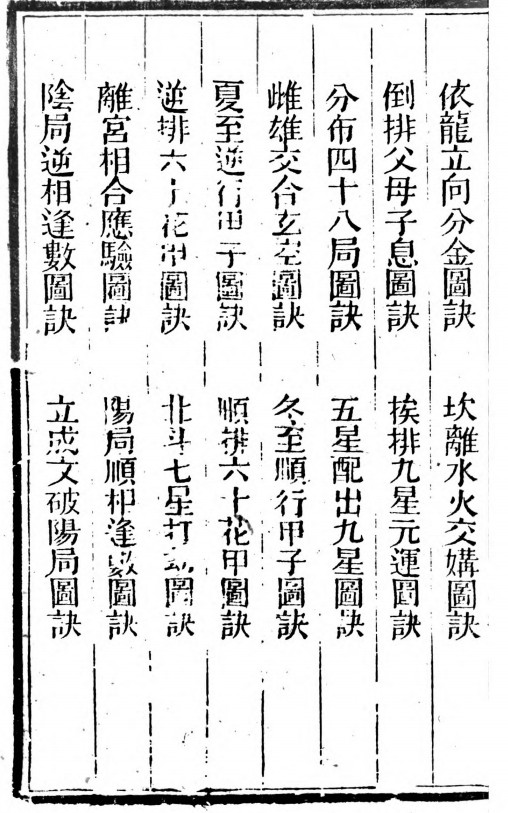 依龍立向分金圖訣　坎離水火交媾圖訣
倒排父母子息圖訣　挨排九星元運圖訣
分布四十八局圖訣　五星配出九星圖訣
雌雄交合玄空圖訣　冬至順行甲子圖訣
夏至逆行甲子圖訣　順排六十花甲圖訣
逆排六十花甲圖訣　北斗七星打劫圖訣
離宮相合應驗圖訣　陽局順相逢數圖訣
陰局逆相逢數圖訣　立成文破陽局圖訣